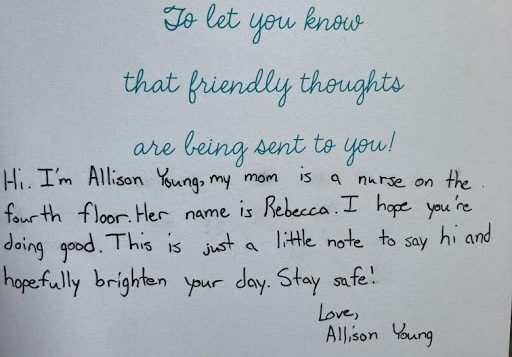 To let you know
that friendly thoughts
are being sent to you!
Hi. I'm Allison Young, my mom is a nurse on the
fourth floor. Her name is Rebecca. I hope you're
doing good. This is just a little note to say hi and
hopefully brighten your day. Stay safe!
Love,
Allison Young